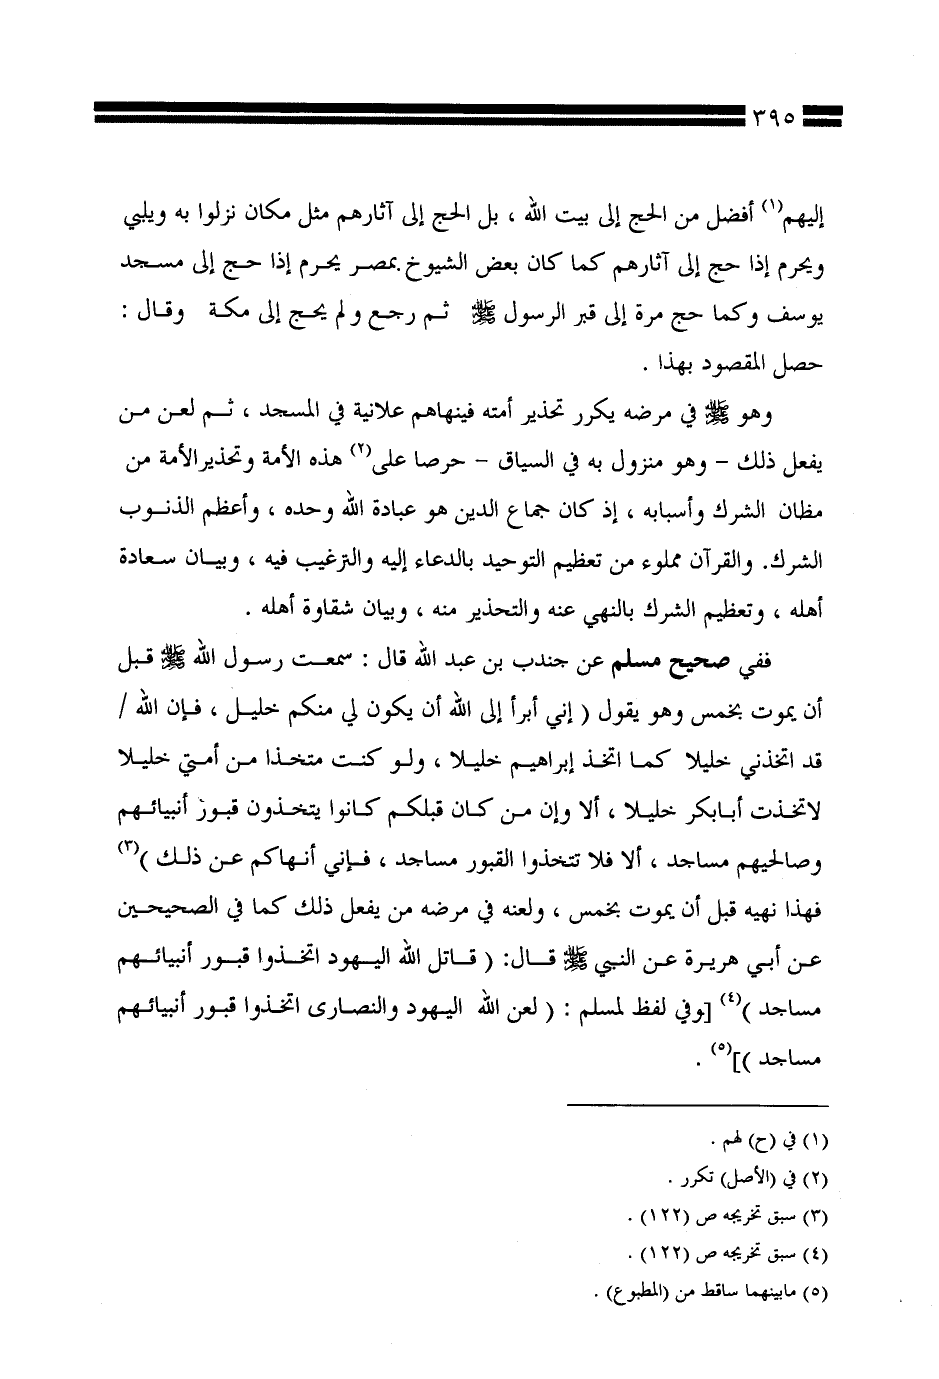 ٣٩٥
إليهم(١) أفضل من الحج إلى بيت الله ، بل الحج إلى آثارهم مثل مكان نزلوا به ويلبي
ويحرم إذا حج إلى آثارهم كما كان بعض الشيوخ بمصر يحرم إذا حج إلى مسجد
يوسف وكما حج مرة إلى قبر الرسول ﷺ ثم رجع ولم يحج إلى مكة وقال :
حصل المقصود بهذا .
وهو ﷺ في مرضه يكرر تحذير أمته فينهاهم علانية في المسجد ، ثم لعن من
يفعل ذلك – وهو منزول به في السياق – حرصا على(٢) هذه الأمة وتحذيرالأمة من
مظان الشرك وأسبابه ، إذ كان جماع الدين هو عبادة الله وحده ، وأعظم الذنوب
الشرك. والقرآن مملوء من تعظيم التوحيد بالدعاء إليه والترغيب فيه ، وبيان سعادة
أهله ، وتعظيم الشرك بالنهي عنه والتحذير منه ، وبيان شقاوة أهله .
ففي صحيح مسلم عن جندب بن عبد الله قال : سمعت رسول الله ﷺ قبل
أن يموت بخمس وهو يقول ( إني أبرأ إلى الله أن يكون لي منكم خليل ، فإن الله /
قد اتخذني خليلا كما اتخذ إبراهيم خليلا ، ولو كنت متخذا من أمتي خليلا
لاتخذت أبابكر خليلا ، ألا وإن من كان قبلكم كانوا يتخذون قبور أنبيائهم
وصالحيهم مساجد ، ألا فلا تتخذوا القبور مساجد ، فإني أنهاكم عن ذلك )(٣)
فهذا نهيه قبل أن يموت بخمس ، ولعنه في مرضه من يفعل ذلك كما في الصحيحين
عن أبي هريرة عن النبي ﷺ قال: ( قاتل الله اليهود اتخذوا قبور أنبيائهم
مساجد )(٤) [وفي لفظ لمسلم : ( لعن الله اليهود والنصارى اتخذوا قبور أنبيائهم
مساجد )](٥) .
(١) في (ح) لهم .
(٢) في (الأصل) تكرر .
(٣) سبق تخريجه ص (١٢٢) .
(٤) سبق تخريجه ص (١٢٢) .
(٥) مابينهما ساقط من (المطبوع) .